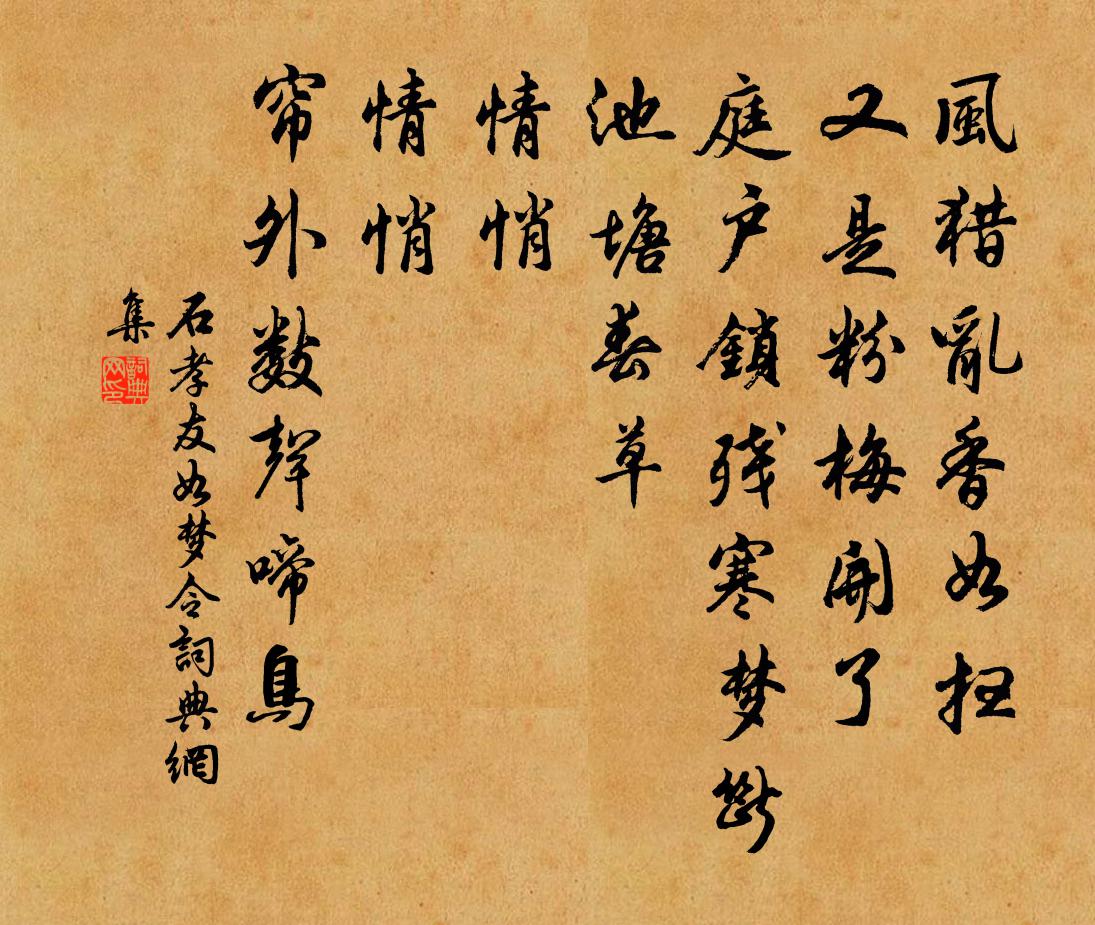 風猎亂香如扫
又是粉梅開了
庭户鎖残寒梦斷
池塘春草
情悄
情悄
帘外數聲啼鳥
石孝友如梦令詞典網
集
詞典网印